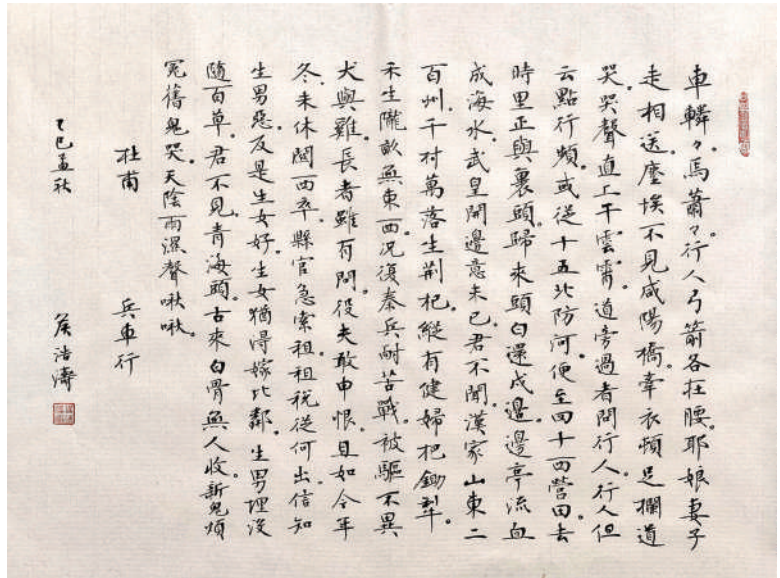 車轔々。馬蕭々。行人弓箭各在腰。耶娘妻子
走相送。塵埃不見咸陽橋。牽衣頓足攔道
哭。哭聲直上干雲霄。道旁過者問行人。行人但
云點行頻。或從十五北防河。便至四十西營田。去
時里正與裹頭。歸來頭白還戍邊。邊亭流血
成海水。武皇開邊意未已。君不聞。漢家山東二
百州。千村萬落生荊杞。縱有健婦把鋤犁。
禾生隴畝無東西。況復秦兵耐苦戰。被驅不異
犬與雞。長者雖有問。役夫敢申恨。且如今年
冬。未休關西卒。縣官急索租。租稅從何出。信知
生男惡。反是生女好。生女猶得嫁比鄰。生男埋沒
隨百草。君不見。青海頭。古來白骨無人收。新鬼煩
冤舊鬼哭。天陰雨濕聲啾啾。
杜甫 兵車行
乙巳孟秋 侯浩濤